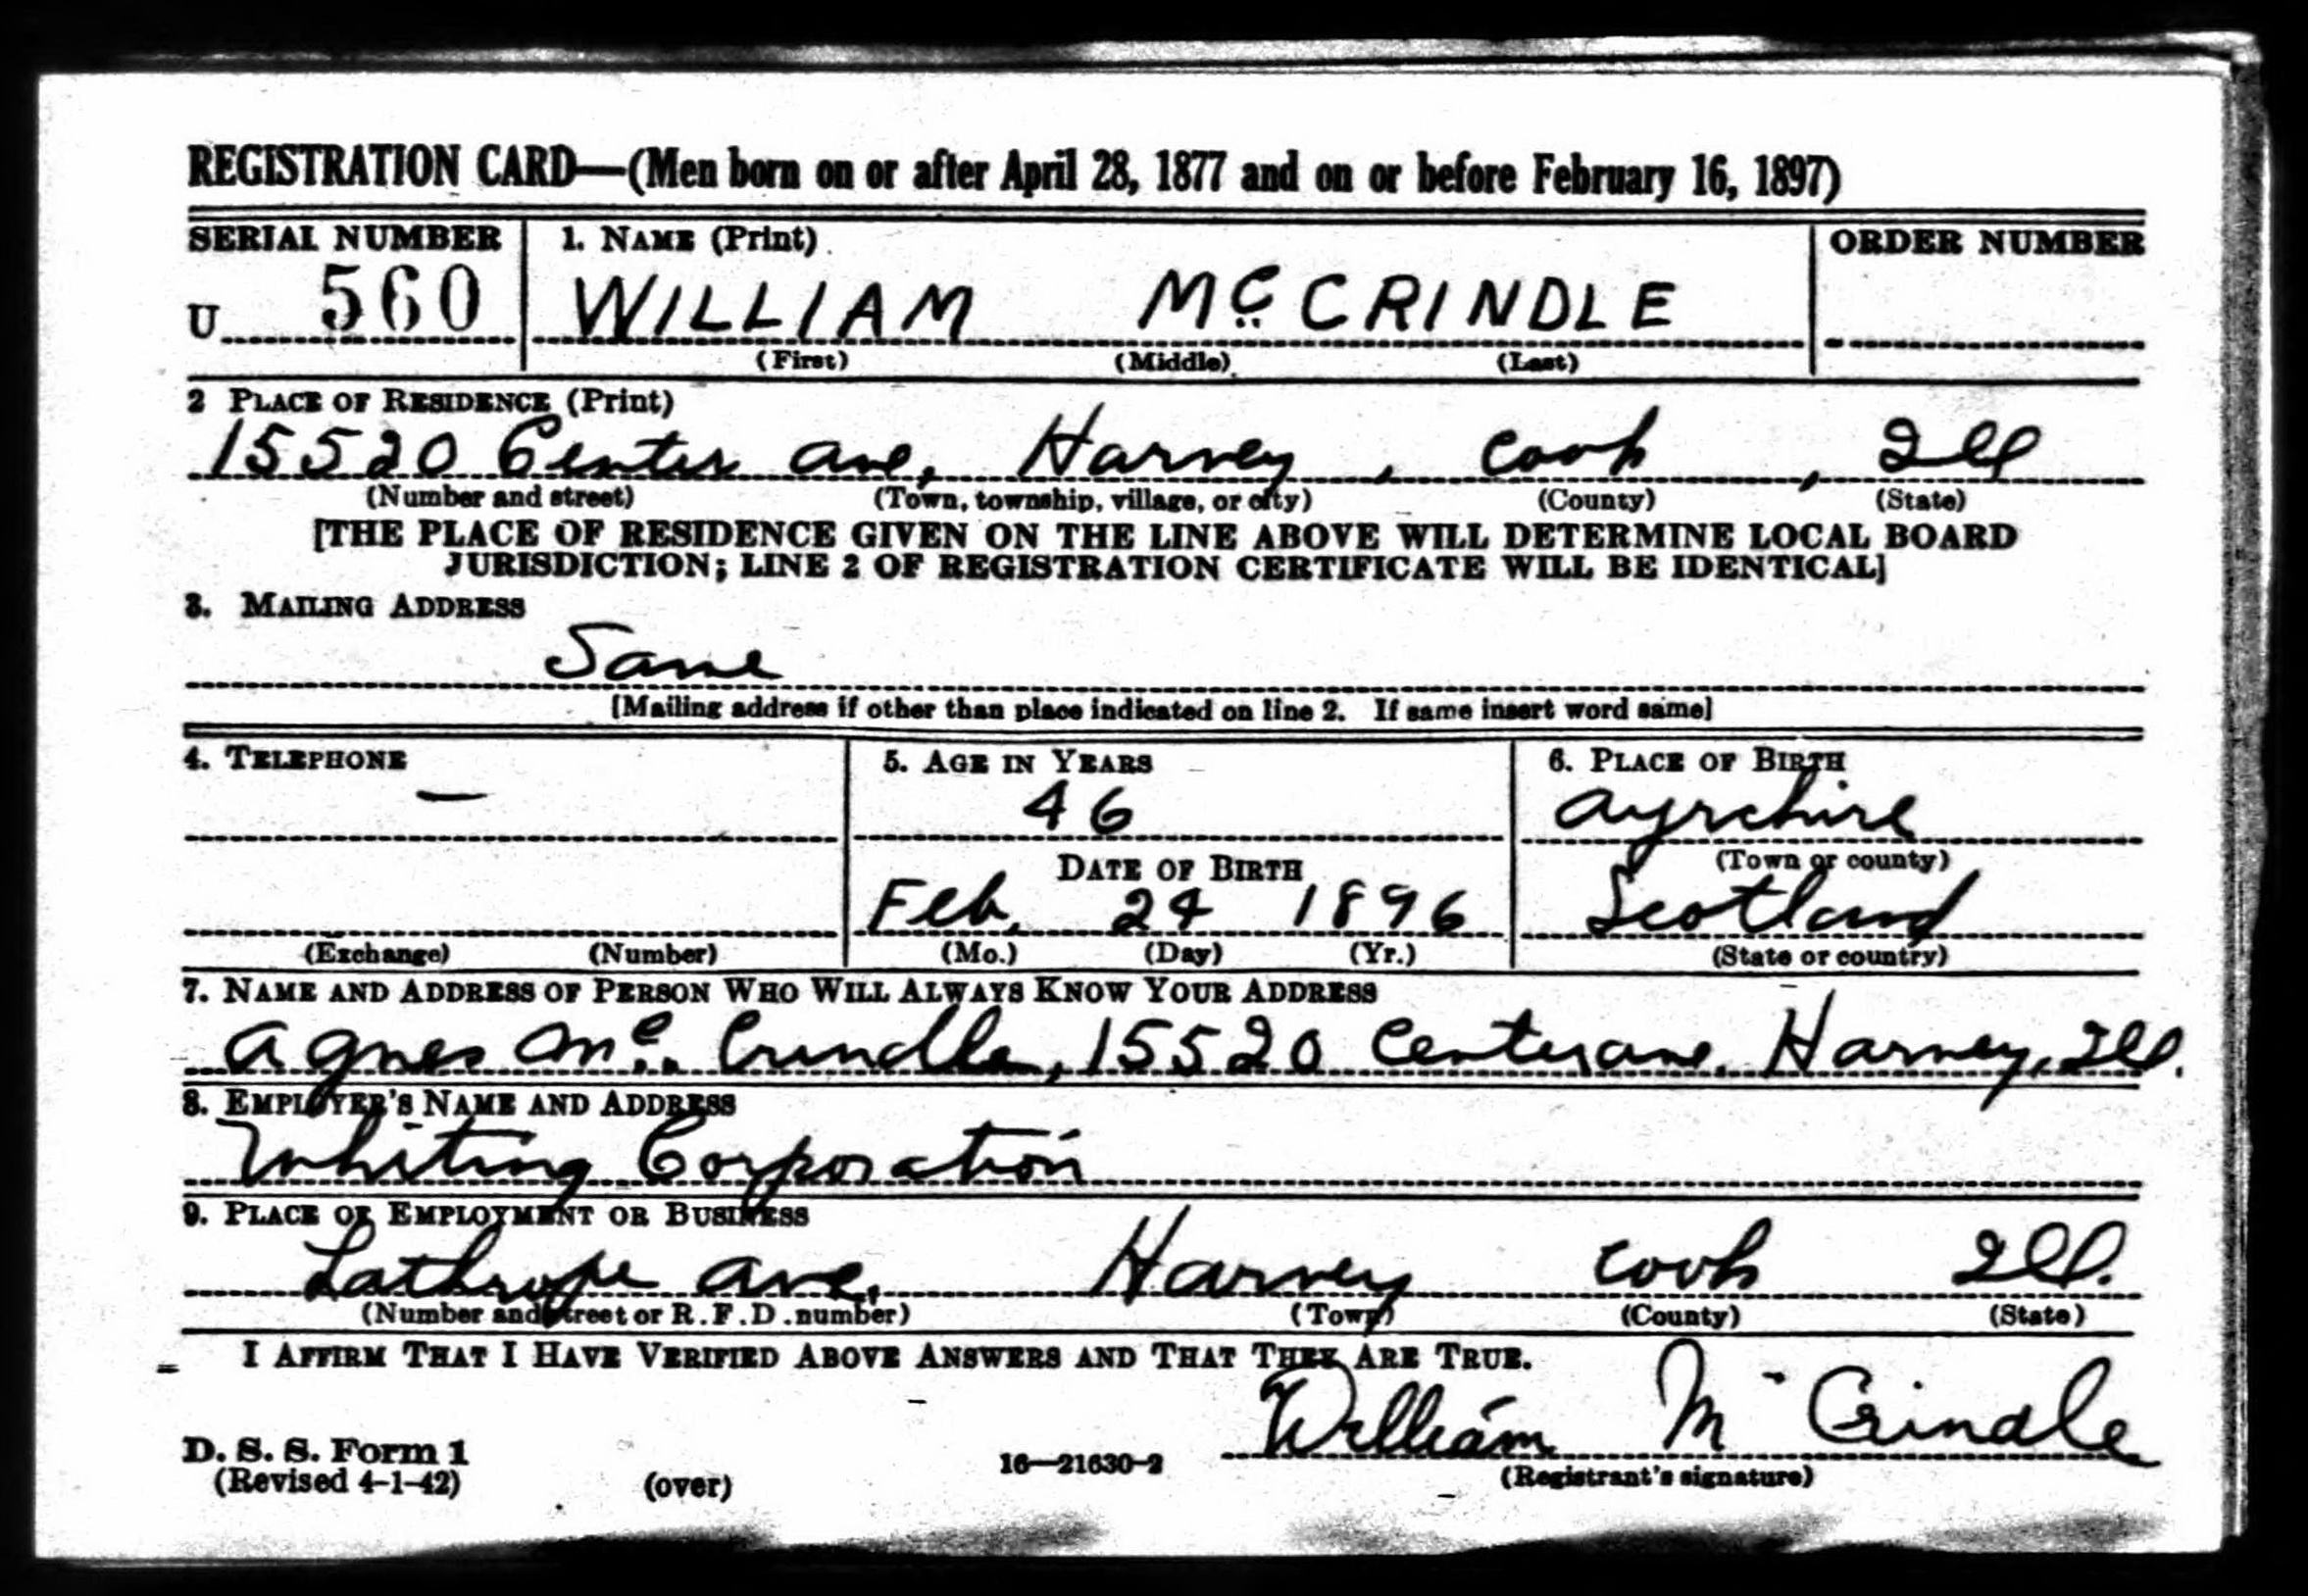 REGISTRATION CARD—(Men born on or after April 28, 1877 and on or before February 16, 1897)
SERIAL NUMBER 1. NAME (Print) ORDER NUMBER
U 560 WILLIAM McCRINDLE
(First) (Middle) (Last)
2 PLACE OF RESIDENCE (Print)
15520 Center ave, Harvey, Cook, Ill
(Number and street) (Town, township, village, or city) (County) (State)
[THE PLACE OF RESIDENCE GIVEN ON THE LINE ABOVE WILL DETERMINE LOCAL BOARD
JURISDICTION; LINE 2 OF REGISTRATION CERTIFICATE WILL BE IDENTICAL]
3. MAILING ADDRESS
Same
[Mailing address if other than place indicated on line 2. If same insert word same]
4. TELEPHONE 5. AGE IN YEARS 6. PLACE OF BIRTH
— 46 Ayrshire
DATE OF BIRTH (Town or county)
Feb. 24 1896 Scotland
(Exchange) (Number) (Mo.) (Day) (Yr.) (State or country)
7. NAME AND ADDRESS OF PERSON WHO WILL ALWAYS KNOW YOUR ADDRESS
Agnes Mc. Crindle, 15520 Center ave. Harvey, Ill.
8. EMPLOYER'S NAME AND ADDRESS
Whiting Corporation
9. PLACE OF EMPLOYMENT OR BUSINESS
Lathrope ave. Harvey Cook Ill.
(Number and street or R. F. D. number) (Town) (County) (State)
I AFFIRM THAT I HAVE VERIFIED ABOVE ANSWERS AND THAT THEY ARE TRUE.
William Mc Crindle
D. S. S. Form 1
(Revised 4-1-42) (over) 16—21630-2 (Registrant's signature)